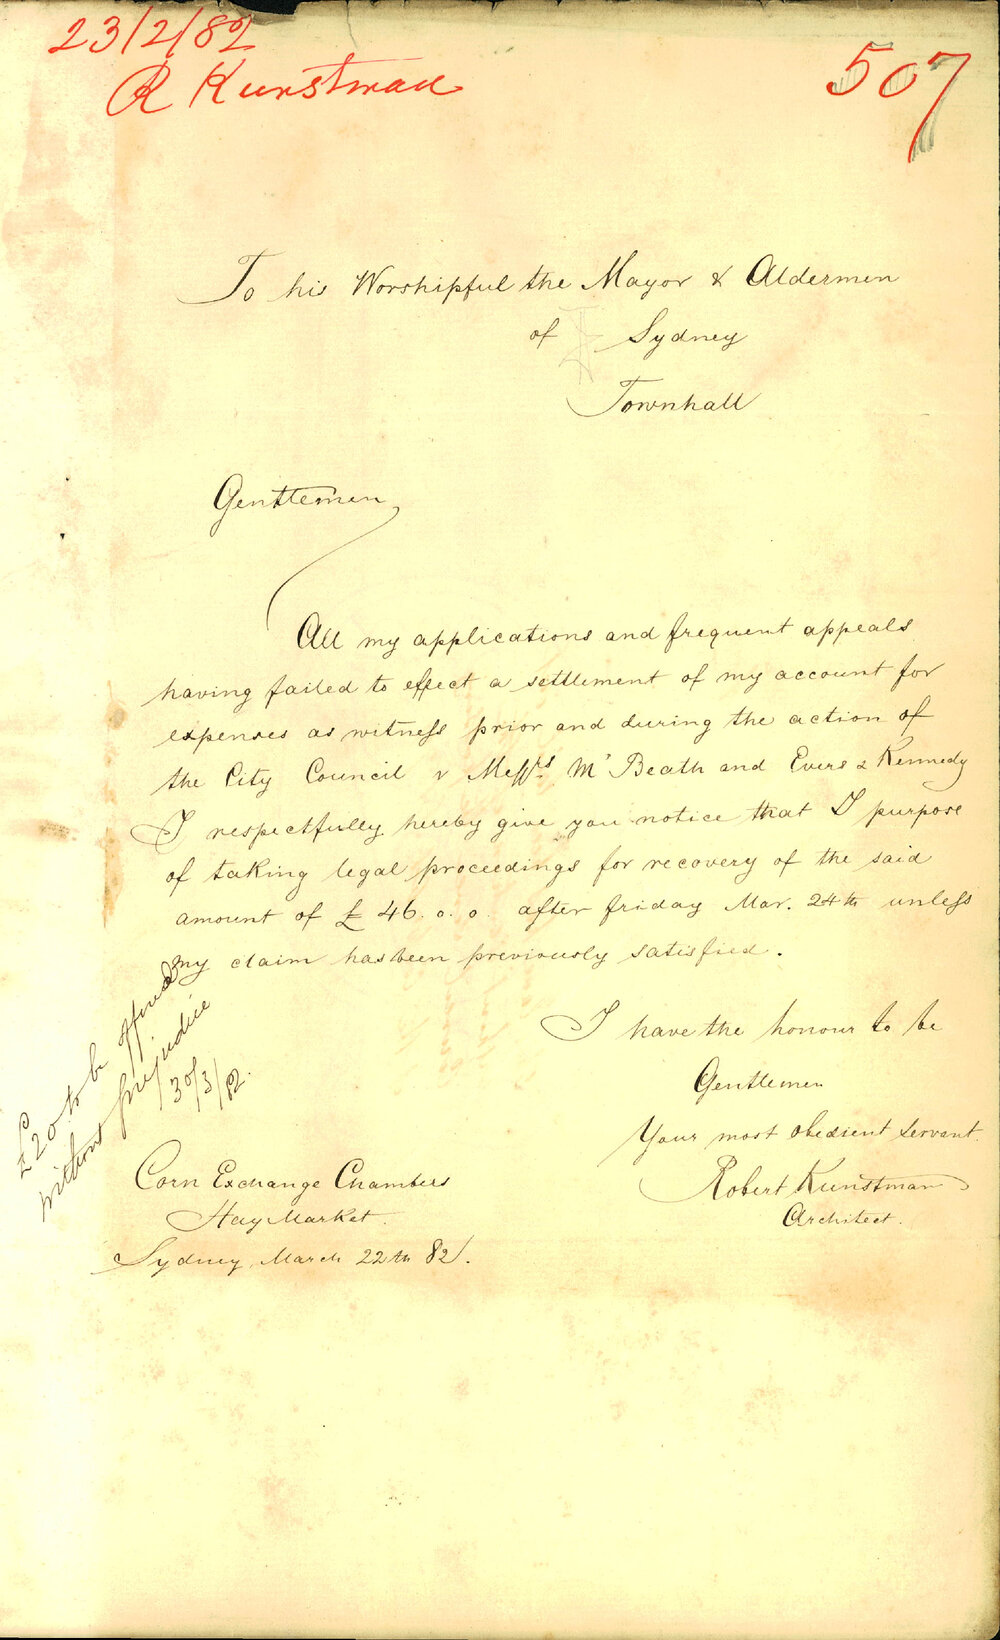 23/2/82
R Kunstman
507
To his Worshipful the Mayor & Aldermen
of Sydney
Townhall
Gentlemen
All my applications and frequent appeals
having failed to effect a settlement of my account for
expenses as witness prior and during the action of
the City Council v Messrs. Mc Beath and Evers & Kennedy
I respectfully hereby give you notice that I purpose
of taking legal proceedings for recovery of the said
amount of £ 46. 0. 0. after friday Mar. 24th unless
my claim has been previously satisfied.
I have the honour to be
Gentlemen
Your most obedient servant.
Robert Kunstman
Architect.
£20 to be offered
without prejudice
30/3/82.
Corn Exchange Chambers
HayMarket.
Sydney, March 22th 82.